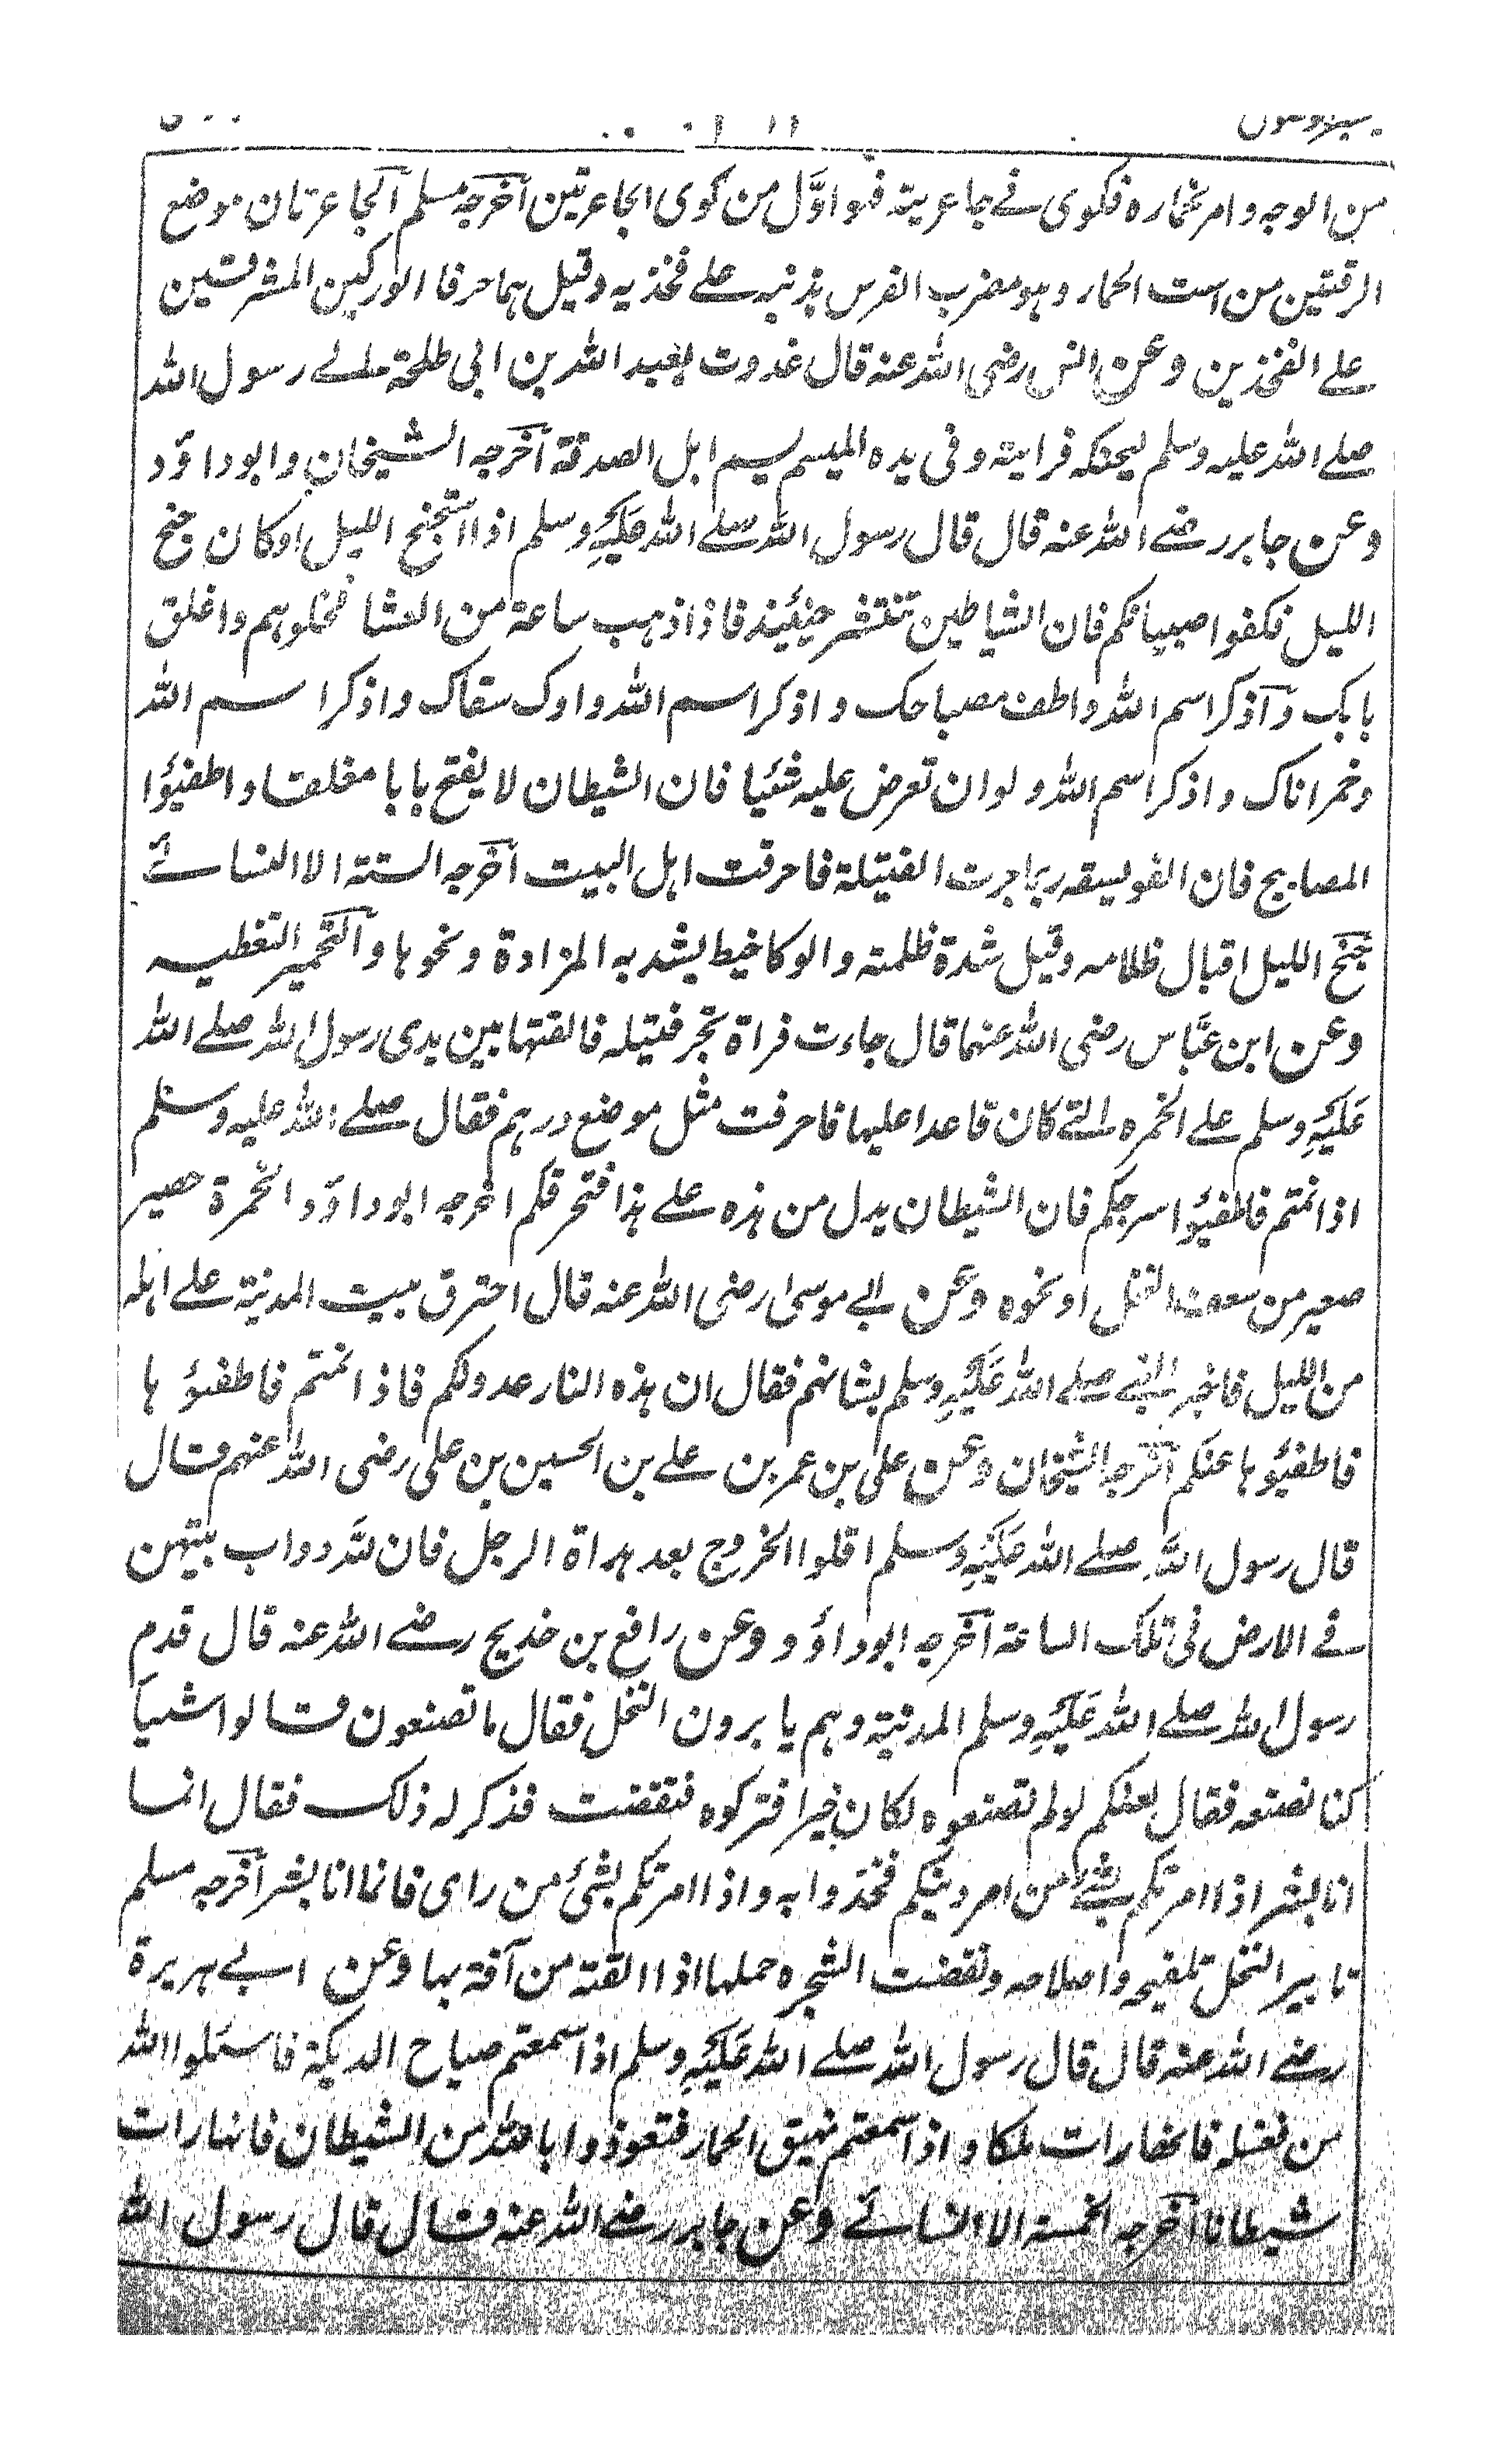 من الوجه وامر بحماره فكوى فے جاعريته فهو اوّل من كوى الجاعرتين آخرجه مسلم آلجاعرتان موضع
الرقتين من است الحمار وهو مضرب الفرس بذنبه علے فخذيه وقيل هما حرفا الوركين المشرفتين
علے الفخذين وعن انس رضى الله عنه قال غدوت بعبد الله بن ابى طلحة الے رسول الله
صلے الله عليه وسلم ليحنكه فرايته وفى يده الميسم يسم ابل الصدقة آخرجه الشيخان وابوداؤد
وعن جابر رضے الله عنه قال قال رسول الله صلے الله عَلَيْهِ وسلم اذا استجنح الليل اوكان جنح
الليل فكفوا صبيانكم فان الشياطين تنتشر حينئيذ فاذا ذهب ساعة من العشا فخلوهم واغلق
بابك وآذكر اسم الله واطف مصباحك واذكر اسم الله واوك سقاك واذكر اسم الله
وخمر اناك واذكر اسم الله ولو ان تعرض عليه شئيا فان الشيطان لا يفتح بابا مغلقا واطفيؤا
المصابيح فان الفويسقه ربما جرت الفتيلة فاحرقت اهل البيت آخرجه الستة الا النسائے
جنح الليل اقبال ظلامه وقيل شدة ظلمته والوكا خيط يشد به المزادة ونحوها وآلتخمير التغطيه
وعن ابن عبَّاس رضى الله عنهما قال جاءت فراة تجر فتيله فالقتها بين يدى رسول الله صلے الله
عَلَيْهِ وسلم علے الخمره التے كان قاعدا عليها فاحرقت مثل موضع درهم فقال صلے الله عليه وسلم
اذا نمتم فاطفيؤا سرجكم فان الشيطان يدل من هذه علے هذا فتحرقكم اخرجه ابوداؤد الخمرة حصير
صعير من سعف النخل او نحوه وعن ابے موسىٰ رضى الله عنه قال احترق بيت المدنية علے اهله
من الليل فاخبر النبے صلے الله عَلَيْهِ وسلم بشانهم فقال ان هذه النار عدولكم فاذا نمتم فاطفيؤ ها
فاطفيؤها عنكم آخرجه الشيخان وعن على بن عمر بن علے بن الحسين بن على رضى الله عنهم قال
قال رسول الله صلے الله عَلَيْهِ وسلم اقلوا الخروج بعد هداة الرجل فان لله دواب يبثهن
فے الارض فى تلك الساعة آخرجه ابوداؤد وعن رافع بن خديج رضے الله عنه قال قدم
رسول الله صلے الله عَلَيْهِ وسلم المدنية وهم يابرون النخل فقال ما تصنعون قالوا اشياَ
كنا نصنعه فقال لعلكم لو لم تصنعوه لكان خيرا فتركوه فنقضت فذكر له ذلك فقال انما
انا بشر اذا امرتكم بشئے من امر دينكم فخذوا به واذا امرتكم بشئ من راى فانما انا بشر آخرجه مسلم
تابير النخل تلقيحه واصلاحه ونقضت الشجره حملها اذا القته من آفة بها وعن ابے هريرة
رضے الله عنه قال قال رسول الله صلے الله عَلَيْهِ وسلم اذا سمعتم صياح الديكة فاسئلوا الله
من فضله فانها رات ملكا واذا سمعتم نهيق الحمار فتعوذوا بالله من الشيطان فانها رات
شيطانا آخرجه الخمسة الا النسائے وعن جابر رضے الله عنه قال قال رسول الله